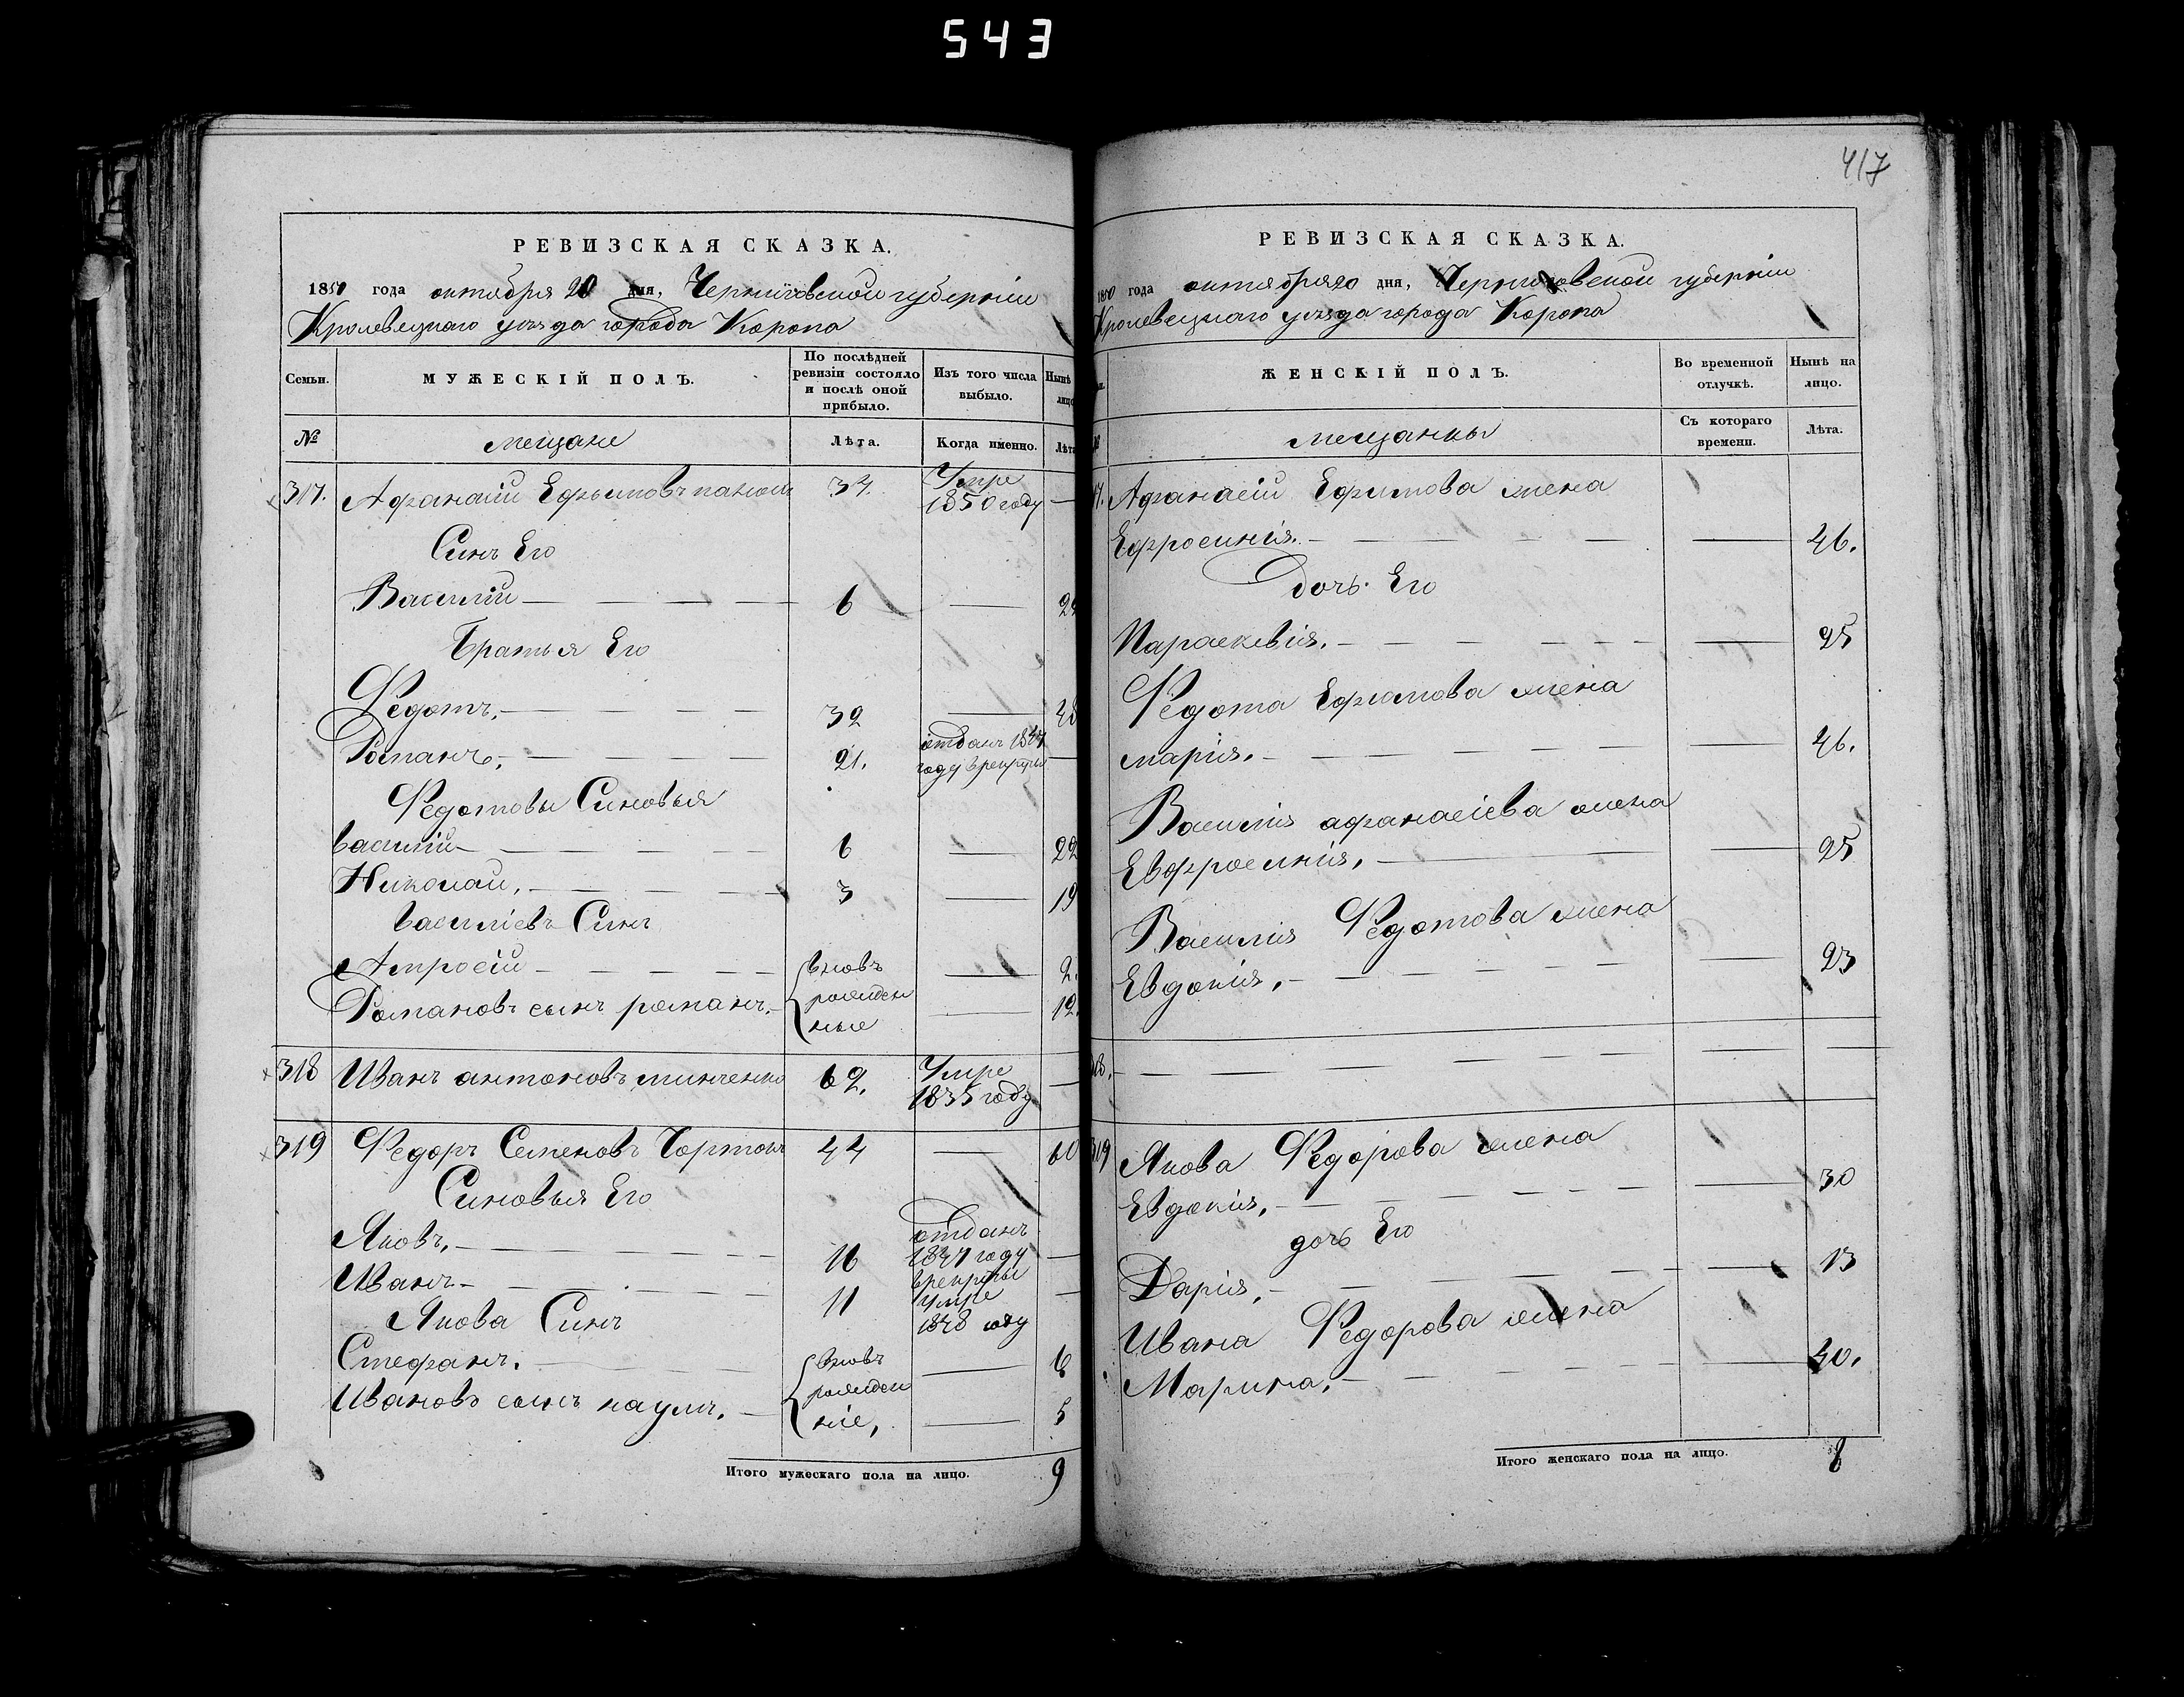 543
417
РЕВИЗСКАЯ СКАЗКА.
1850 года октября 20 дня, Черниговской губерніи
Кролевецкаго уѣзда города Коропа
Семьи. МУЖЕСКІЙ ПОЛЪ. По послѣдней ревизіи состояло и послѣ оной прибыло. Изъ того числа выбыло. Нынѣ лицо
№ мещане Лѣта. Когда именно. Лѣта
317. Афанасій Ефимовъ 34. Умре 1850 году —
Синъ Его
Василій — 6 — 22
Братья Его
Федотъ, — 32 — 48
Романъ, — 21. отданъ 1847 году врекруты —
Федотовы Синовья
василій — 6 — 22
Николай, — 3 — 19
василіевъ Синъ
Амросій — вновь — 2.
Романовъ сынъ романъ. — рожден ные — 12.
318 Иванъ антоновъ минченко 62. Умре 1835 году —
319 Федоръ Семеновъ 44 — 60
Синовья Его
Яковъ, — 16 отданъ 1847 году врекруты —
Иванъ — 11 Умре 1848 году —
Якова Синъ
Стефанъ. — вновь — 6
Ивановъ сынъ наумъ. — рожден ніе, — 5
Итого мужескаго пола на лицо. 9
РЕВИЗСКАЯ СКАЗКА.
1850 года октября 20 дня, Черниговской губерніи
Кролевецкаго уѣзда города Коропа
ЖЕНСКІЙ ПОЛЪ. Во временной отлучкѣ. Нынѣ на лицо.
мещанки Съ котораго времени. Лѣта.
17. Афанасія Ефимова жена
Ефросинія. — — 46.
дочь Его
Параскевія. — — 25
Федота Ефимова жена
марія. — — 46.
Василія афанасіева жена
Евфросинія, — — 25
Василія Федотова жена
Евдокія, — — 23
18. — — —
319 Якова Федорова жена
Евдокія, — — 30
дочь Его
Дарія, — — 13
Ивана Федорова жена
Марина, — — 40.
Итого женскаго пола на лицо. 8